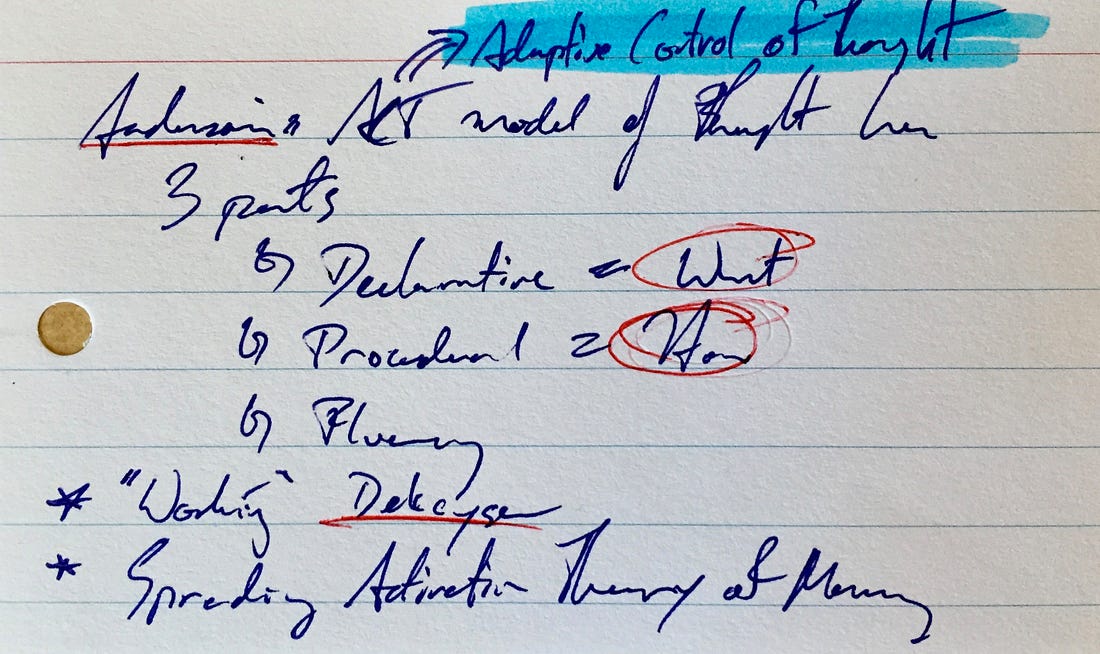 Adaptive Control of Thought
Anderson's ACT model of Thought has
3 parts
↳ Declarative = What
↳ Procedural = How
↳ Fluency
* "Working" Dekeyser
* Spreading Activation Theory of Memory